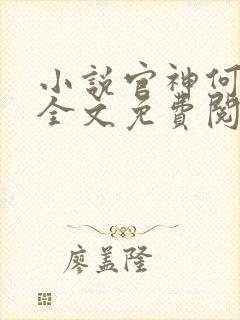 小說官神何
全文免費閱
廖盖隆